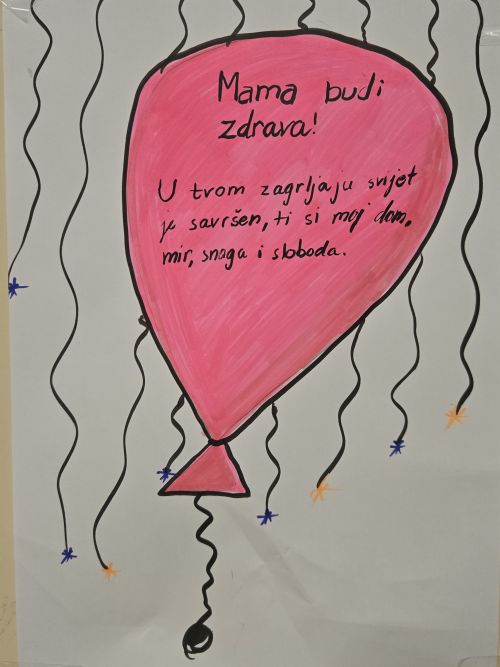 Mama budi
zdrava!
U tvom zagrljaju svijet
je savršen, ti si moj dom,
mir, snaga i sloboda.